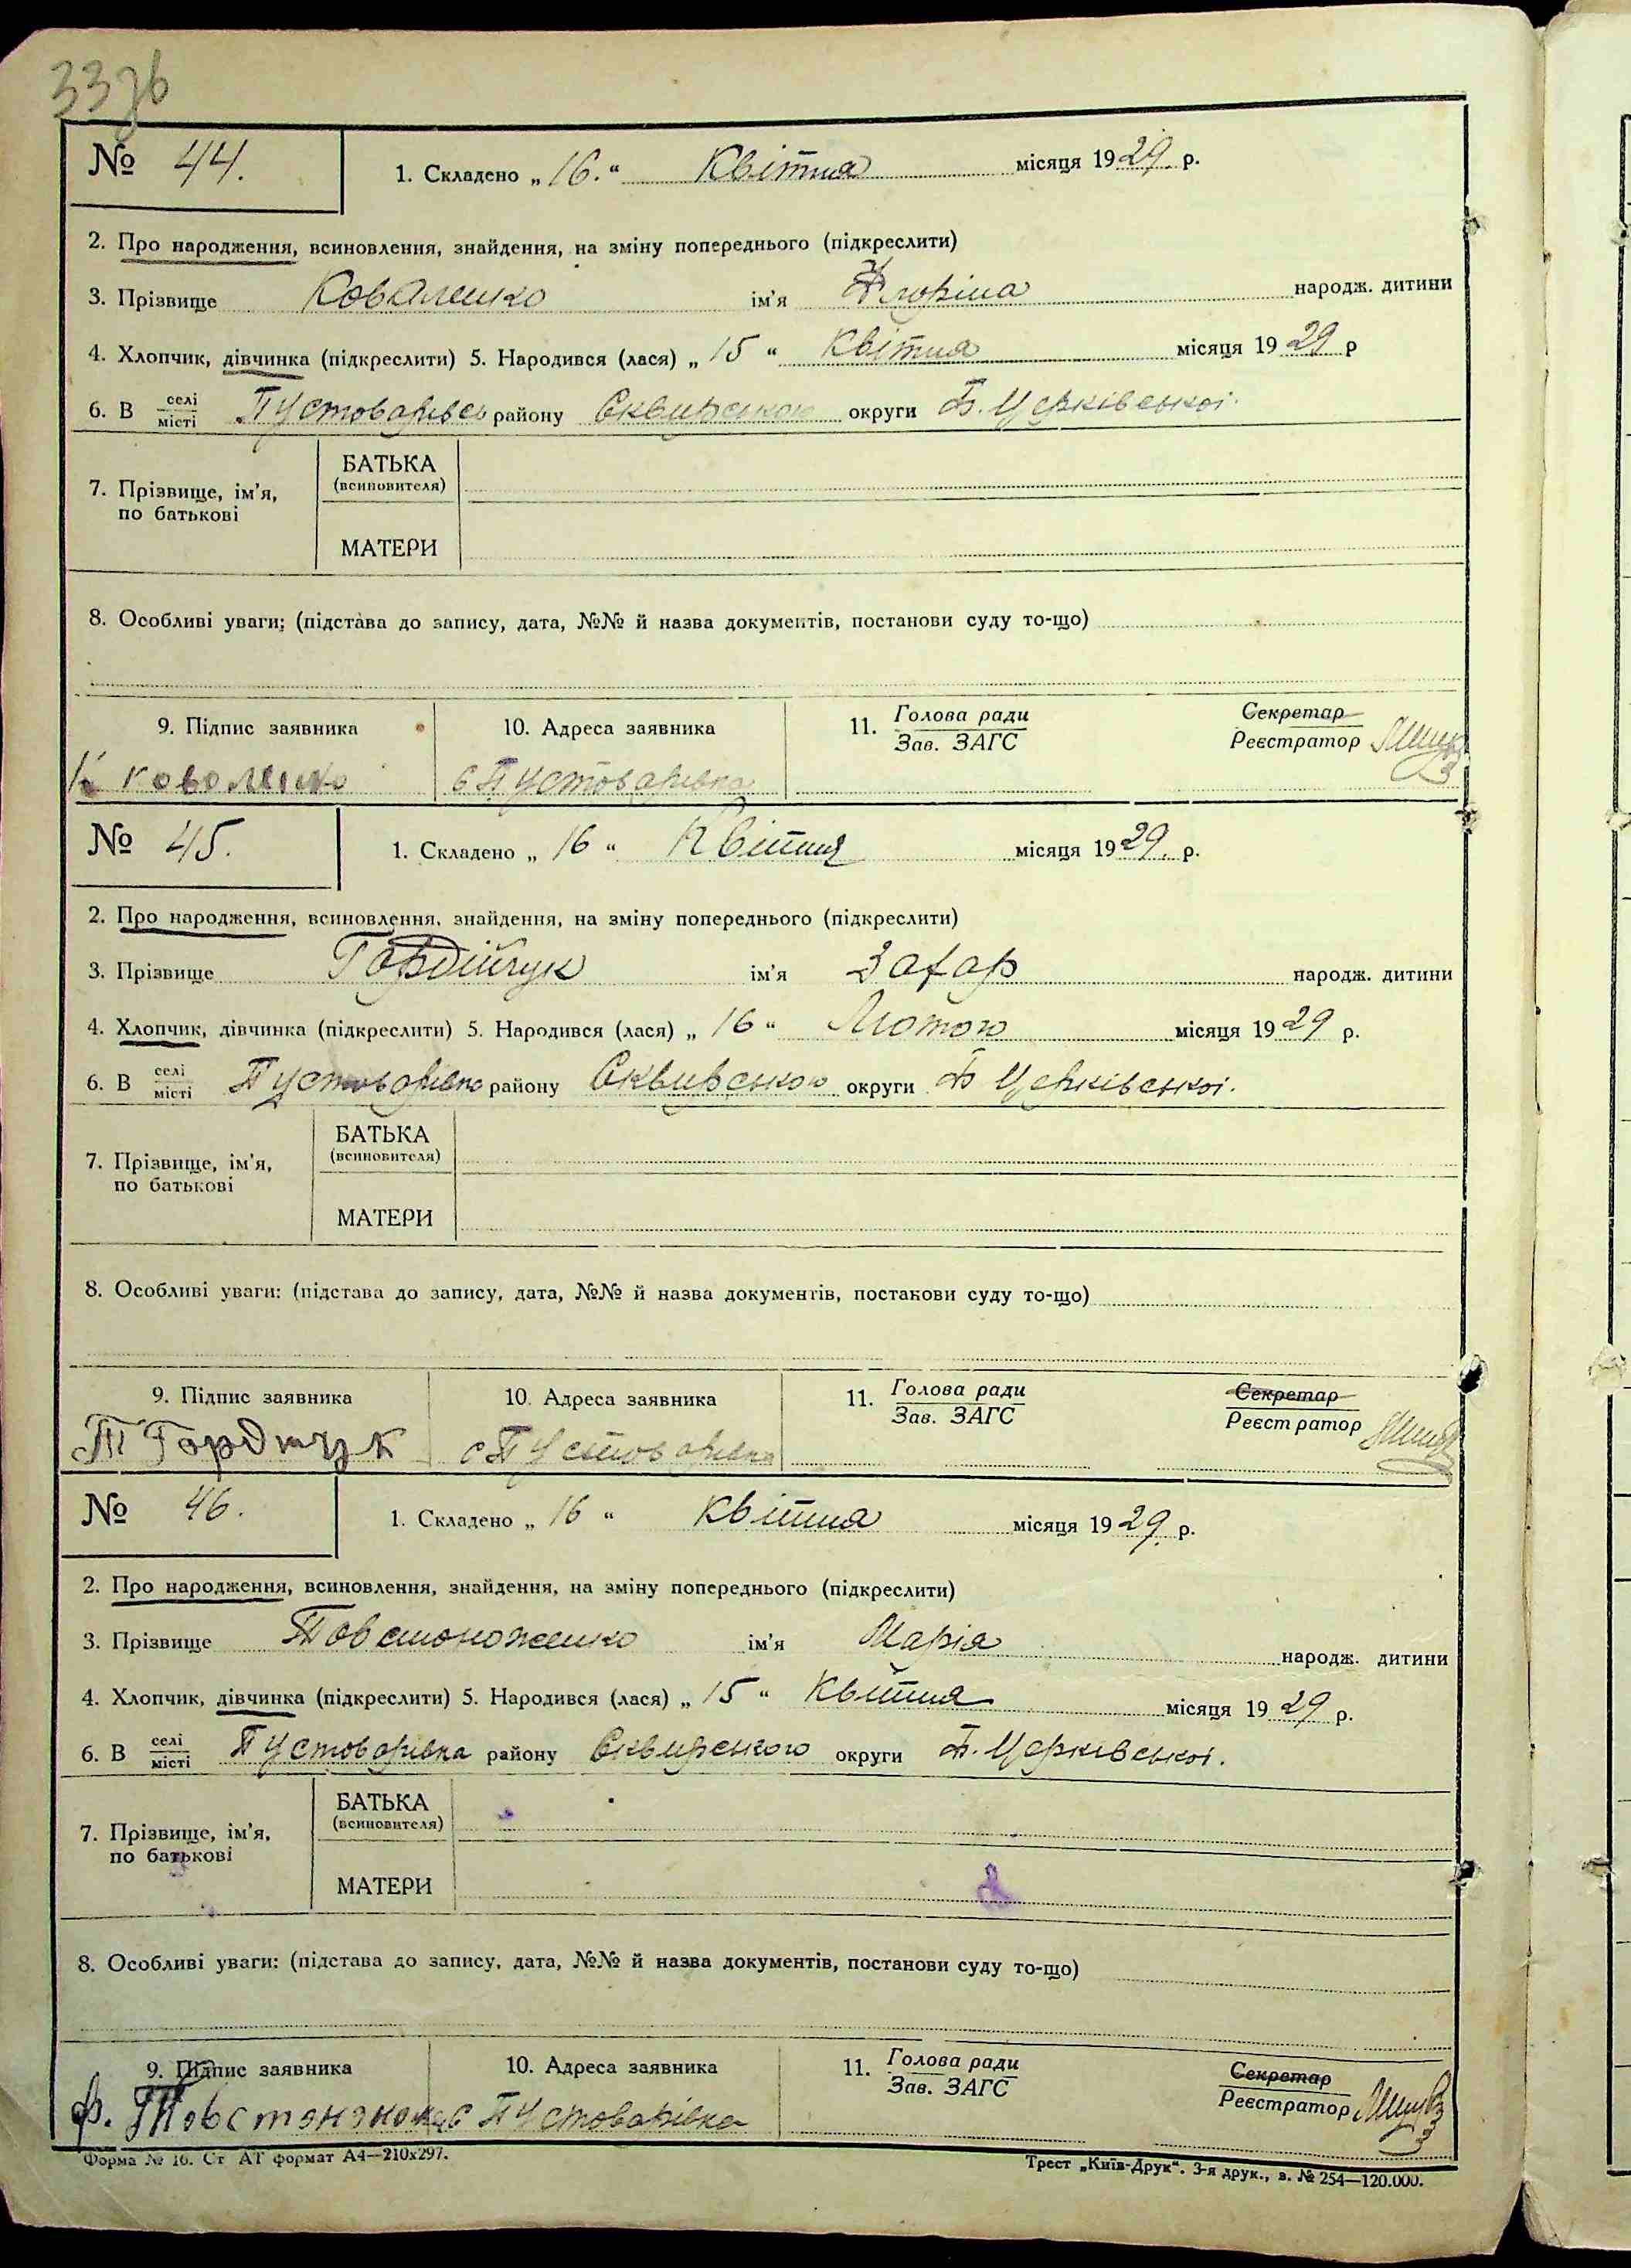 33зв
№ 44.
1. Складено „ 16. “ Квітня місяця 1929. р.
2. Про народження, всиновлення, знайдення, на зміну попереднього (підкреслити)
3. Прізвище Коваленко ім'я народж. дитини
4. Хлопчик, дівчинка (підкреслити) 5. Народився (лася) „ 15 “ Квітня місяця 1929 р
6. В селі/місті Пустоварівка району Сквирського округи Б. Церківської.
7. Прізвище, ім'я, по батькові
БАТЬКА (всиновителя)
МАТЕРИ
8. Особливі уваги; (підстава до запису, дата, №№ й назва документів, постанови суду то-що)
9. Підпис заявника 10. Адреса заявника 11. Голова ради/Зав. ЗАГС Секретар/Реєстратор
Коволенко с Пустоварівка
№ 45.
1. Складено „ 16 “ Квітня місяця 1929. р.
2. Про народження, всиновлення, знайдення, на зміну попереднього (підкреслити)
3. Прізвище Гордійчук ім'я Захар народж. дитини
4. Хлопчик, дівчинка (підкреслити) 5. Народився (лася) „ 16 “ Лютого місяця 1929 р.
6. В селі/місті Пустоварівка району Сквирського округи Б Церківської.
7. Прізвище, ім'я, по батькові
БАТЬКА (всиновителя)
МАТЕРИ
8. Особливі уваги: (підстава до запису, дата, №№ й назва документів, постанови суду то-що)
9. Підпис заявника 10. Адреса заявника 11. Голова ради/Зав. ЗАГС Секретар/Реєстратор
Т Гордичук с Пустоварівка
№ 46.
1. Складено „ 16 “ квітня місяця 1929. р.
2. Про народження, всиновлення, знайдення, на зміну попереднього (підкреслити)
3. Прізвище Товстоноженко ім'я Марія народж. дитини
4. Хлопчик, дівчинка (підкреслити) 5. Народився (лася) „ 15 “ Квітня місяця 1929 р.
6. В селі/місті Пустоварівка району Сквирського округи Б. Церківської.
7. Прізвище, ім'я, по батькові
БАТЬКА (всиновителя)
МАТЕРИ
8. Особливі уваги: (підстава до запису, дата, №№ й назва документів, постанови суду то-що)
9. Підпис заявника 10. Адреса заявника 11. Голова ради/Зав. ЗАГС Секретар/Реєстратор
ф. с Пустоварівка
Форма № 16. Ст АТ формат А4—210х297.
Трест „Київ-Друк“. 3-я друк., з. № 254—120.000.